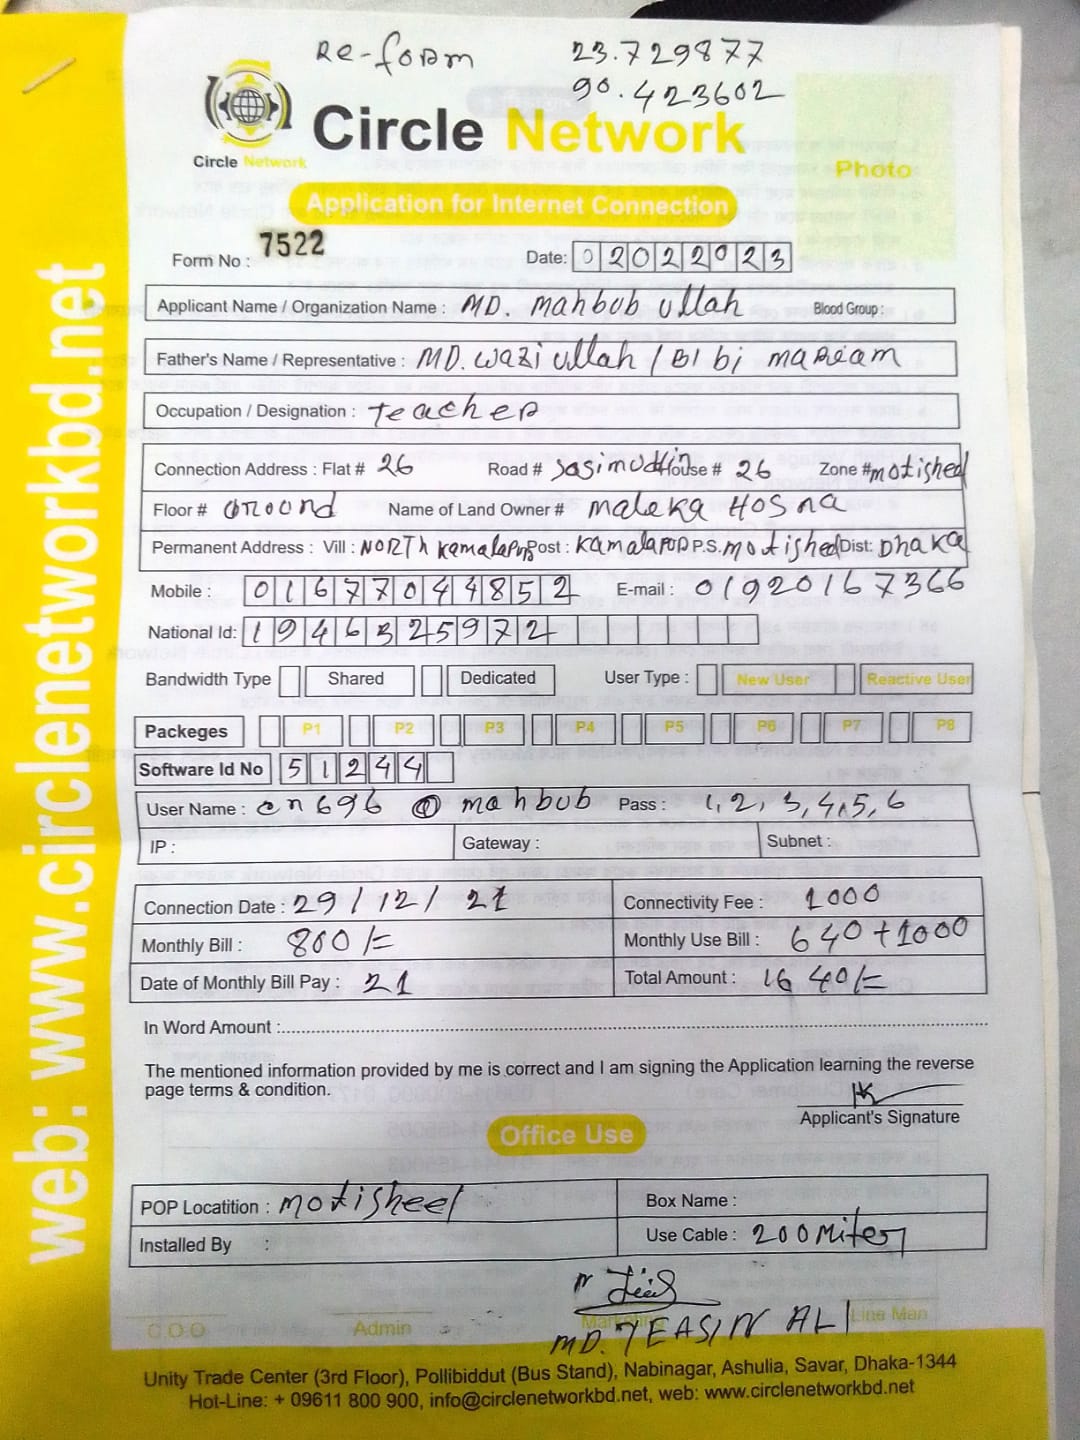 Re-form 23.729877
90.423602
Circle Network
Circle Network
Photo
Application for Internet Connection
Form No : 7522 Date: 02022023
Applicant Name / Organization Name : MD. Mahbub Ullah Blood Group :
Father's Name / Representative : MD. Wazi Ullah / BI bi maReam
Occupation / Designation : Teacher
Connection Address : Flat # 26 Road # Josimuddin House # 26 Zone # motisheel
Floor # Ground Name of Land Owner # maleka Hosna
Permanent Address : Vill : North Kamalapur Post : Kamalapur P.S. motisheel Dist: Dhaka
Mobile : 01677044852 E-mail : 01920167366
National Id: 1946325972
Bandwidth Type Shared Dedicated User Type : New User Reactive User
Packeges P1 P2 P3 P4 P5 P6 P7 P8
Software Id No 51244
User Name : cn696 @ mahbub Pass : 1,2,3,4,5,6
IP : Gateway : Subnet :
Connection Date : 29/12/21 Connectivity Fee : 1000
Monthly Bill : 800/= Monthly Use Bill : 640+1000
Date of Monthly Bill Pay : 21 Total Amount : 1640/=
In Word Amount :
The mentioned information provided by me is correct and I am signing the Application learning the reverse
page terms & condition.
Applicant's Signature
Office Use
POP Locatition : motisheel Box Name :
Installed By : Use Cable : 200 Miter
C.O.O Admin Marketing Line Man
MD. YEASIN ALI
Unity Trade Center (3rd Floor), Pollibiddut (Bus Stand), Nabinagar, Ashulia, Savar, Dhaka-1344
Hot-Line: + 09611 800 900, info@circlenetworkbd.net, web: www.circlenetworkbd.net
web: www.circlenetworkbd.net